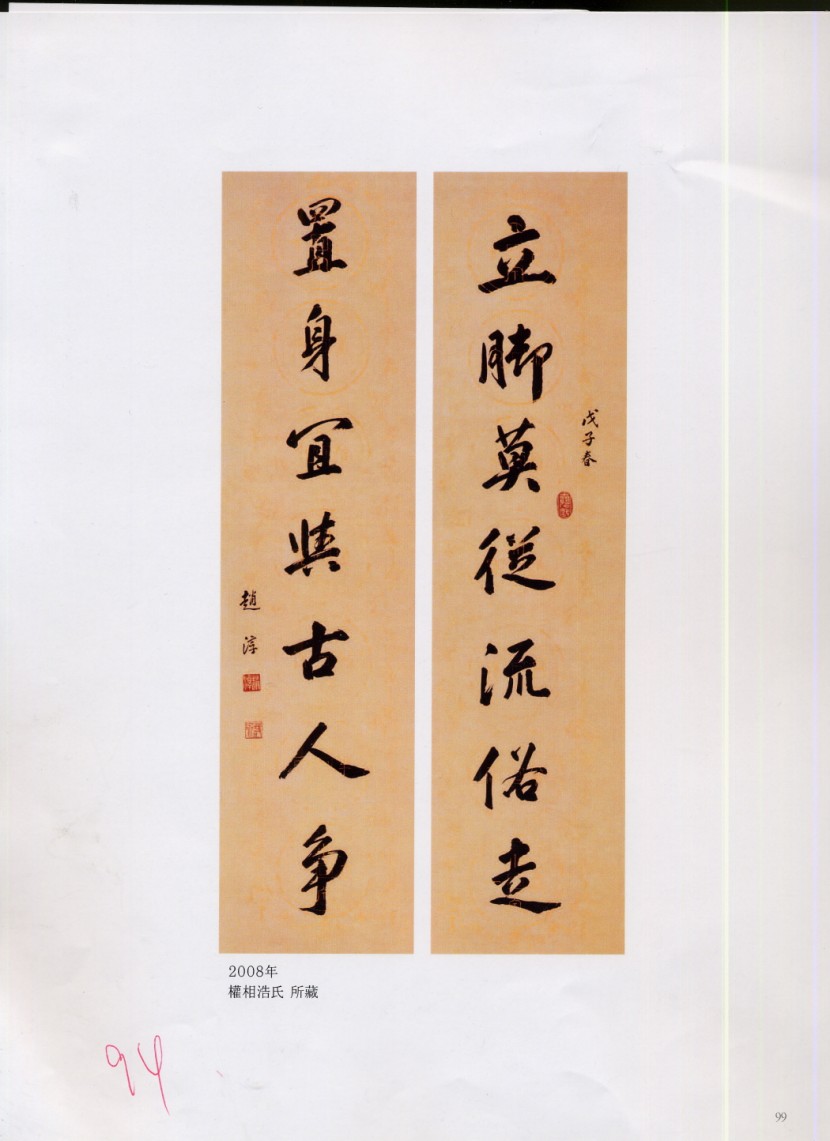 立脚莫從流俗走
戊子春
置身宜與古人争
趙淳
2008年
權相浩氏 所藏
94
99